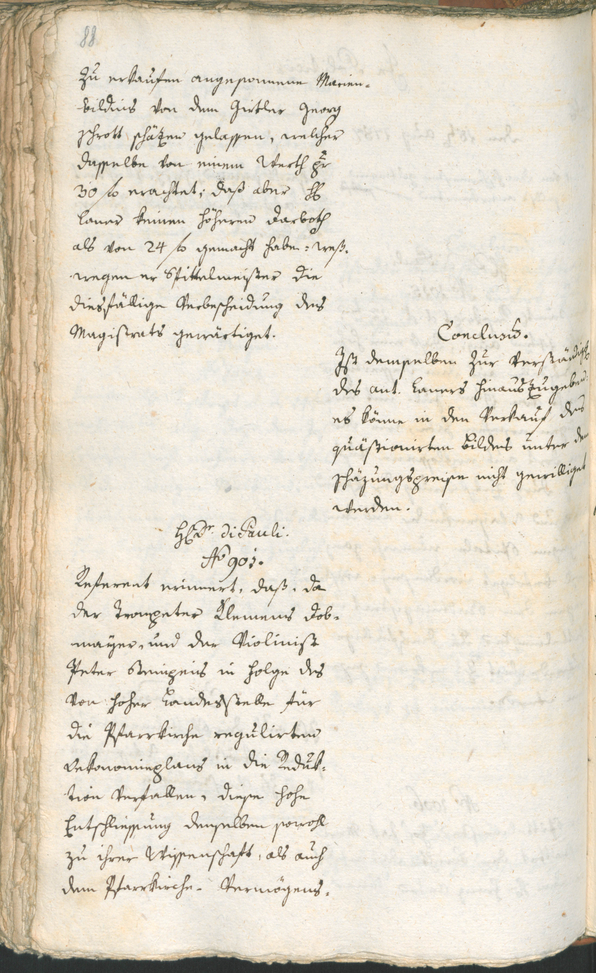 88
zu erkaufen angesonnene Marien-
bildnis von dem Girtler Georg
Schrott schäzen gelassen, welcher
dasselbe von einem Werth pr
30 f erachtet; daß aber H
Laner keinen höheren Anboth
als von 24 f gemacht habe: weß-
wegen er Spittelmeister die
diesfällige Verbescheidung des
Magistrats gewärtiget.
Conclusum.
Ist demselben zur Verständigung
des ant. Laners hinauszugeben
es könne in den Verkauf des
quäßionirten Bildes unter dem
Schäzungspreise nicht gewilliget
werden.
H Dr. di Pauli.
No 901.
Referent erinnert, daß, da
der Trompeter Klemens Dob-
mayer, und der Violinist
Peter in Folge des
von hoher Landesstelle für
die Pfarrkirche regulirten
Oekonomieplans in die Reduk-
tion verfallen, diese hohe
Entschliessung denselben sowohl
zu ihrer Wissenschaft, als auch
dem Pfarrkirche-Vermögens-